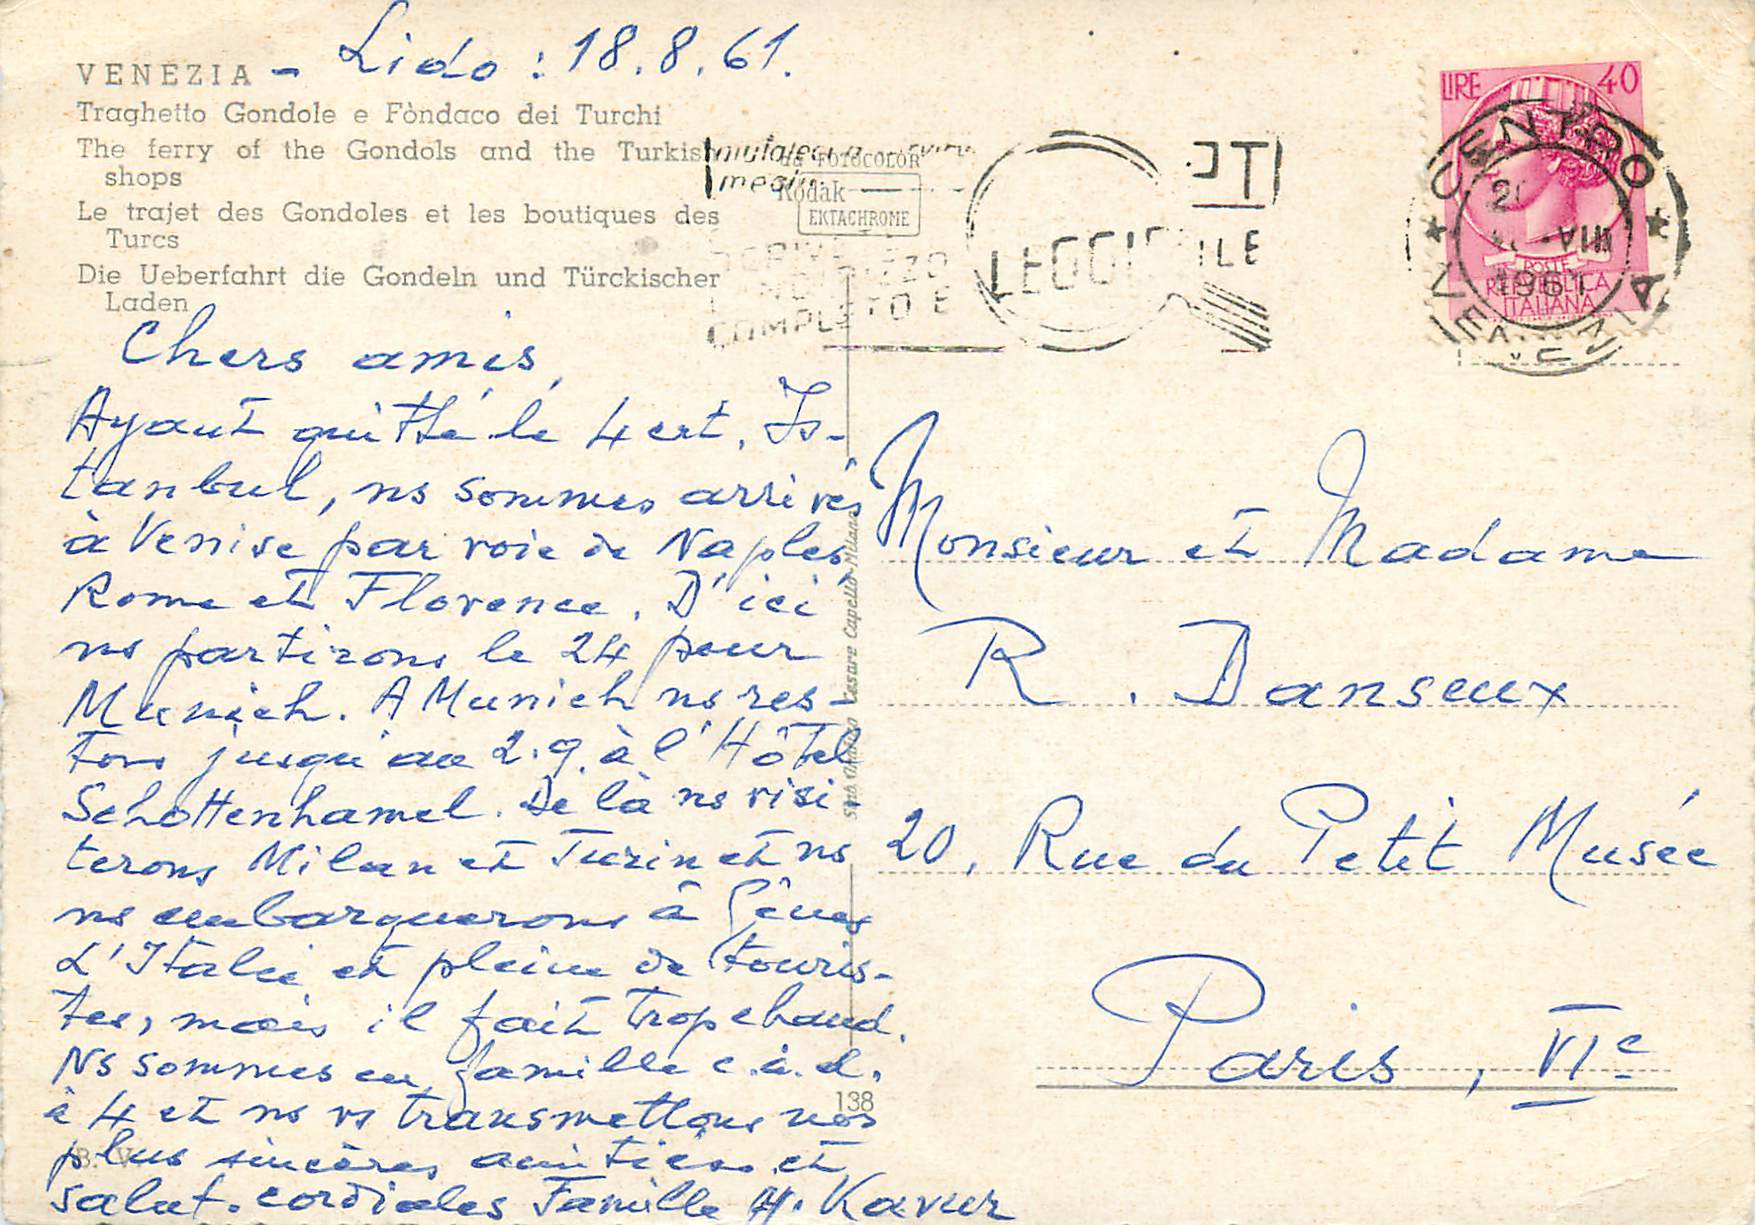 VENEZIA - Lido : 18.8.61.
Traghetto Gondole e Fòndaco dei Turchi
The ferry of the Gondols and the Turkish
shops
Le trajet des Gondoles et les boutiques des
Turcs
Die Ueberfahrt die Gondeln und Türckischer
Laden
FOTOCOLOR
Kodak
EKTACHROME
INDIRIZZO
COMPLETO E
LEGGIBILE
LIRE 40
POSTE
REPUBBLICA
ITALIANA
CENTRO
VIII
1961
VENEZIA
Chers amis,
Ayant quitté le 4 crt. Is-
tanbul, ns sommes arrivés
à Venise par voie de Naples
Rome et Florence. D'ici
ns partirons le 24 pour
Munich. A Munich ns res-
tons jusqu'au 2.9. à l'Hôtel
Schottenhamel. De là ns visi-
terons Milan et Turin et ns
ns embarquerons à Gênes
L'Italie est pleine de touris-
tes, mais il fait trop chaud.
Ns sommes en famille c.à.d.
à 4 et ns vs transmettons nos
plus sincères amitiés et
salut. cordiales Famille H. Kavur
Monsieur et Madame
R. Danseux
20, Rue du Petit Musée
Paris, VIe
Cesare Capello - Milano
138
B. V.